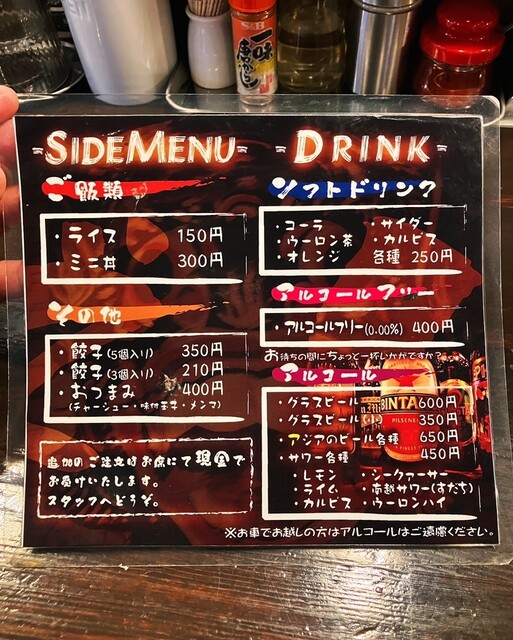 SIDEMENU
ご飯類
・ライス 150円
・ミニ丼 300円
その他
・餃子(5個入り) 350円
・餃子(3個入り) 210円
・おつまみ 400円
(チャーシュー・味付玉子・メンマ)
追加のご注文時お席にて現金で
お受けいたします。
スタッフへどうぞ。
DRINK
ソフトドリンク
・コーラ ・サイダー
・ウーロン茶 ・カルピス
・オレンジ 各種 250円
アルコールフリー
・アルコールフリー(0.00%) 400円
お待ちの間にちょっと一杯いかがですか?
アルコール
・グラスビール 600円
・グラスビール 350円
・アジアのビール各種 650円
・サワー各種 450円
・レモン ・シークァーサー
・ライム ・南越サワー(すだち)
・カルピス ・ウーロンハイ
※お車でお越しの方はアルコールはご遠慮ください。
BINTA
PILSENER
S&B
一味
唐からし